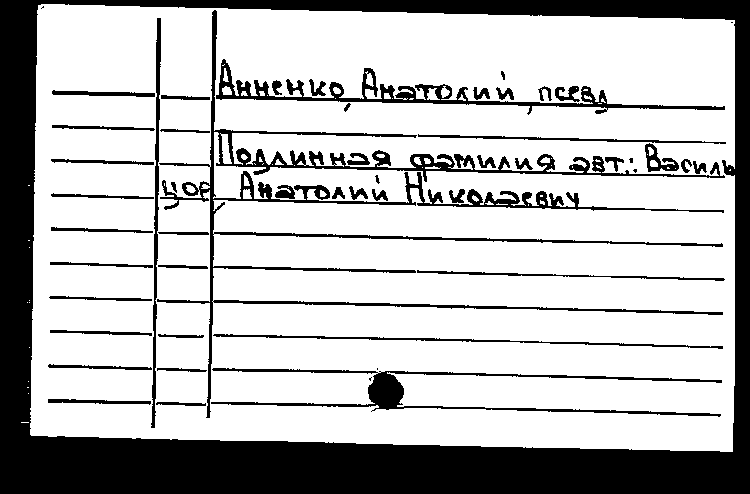 Анненко, Анатолий, псевд
Подлинная фамилия авт.: Василь
цов, Анатолий Николаевич